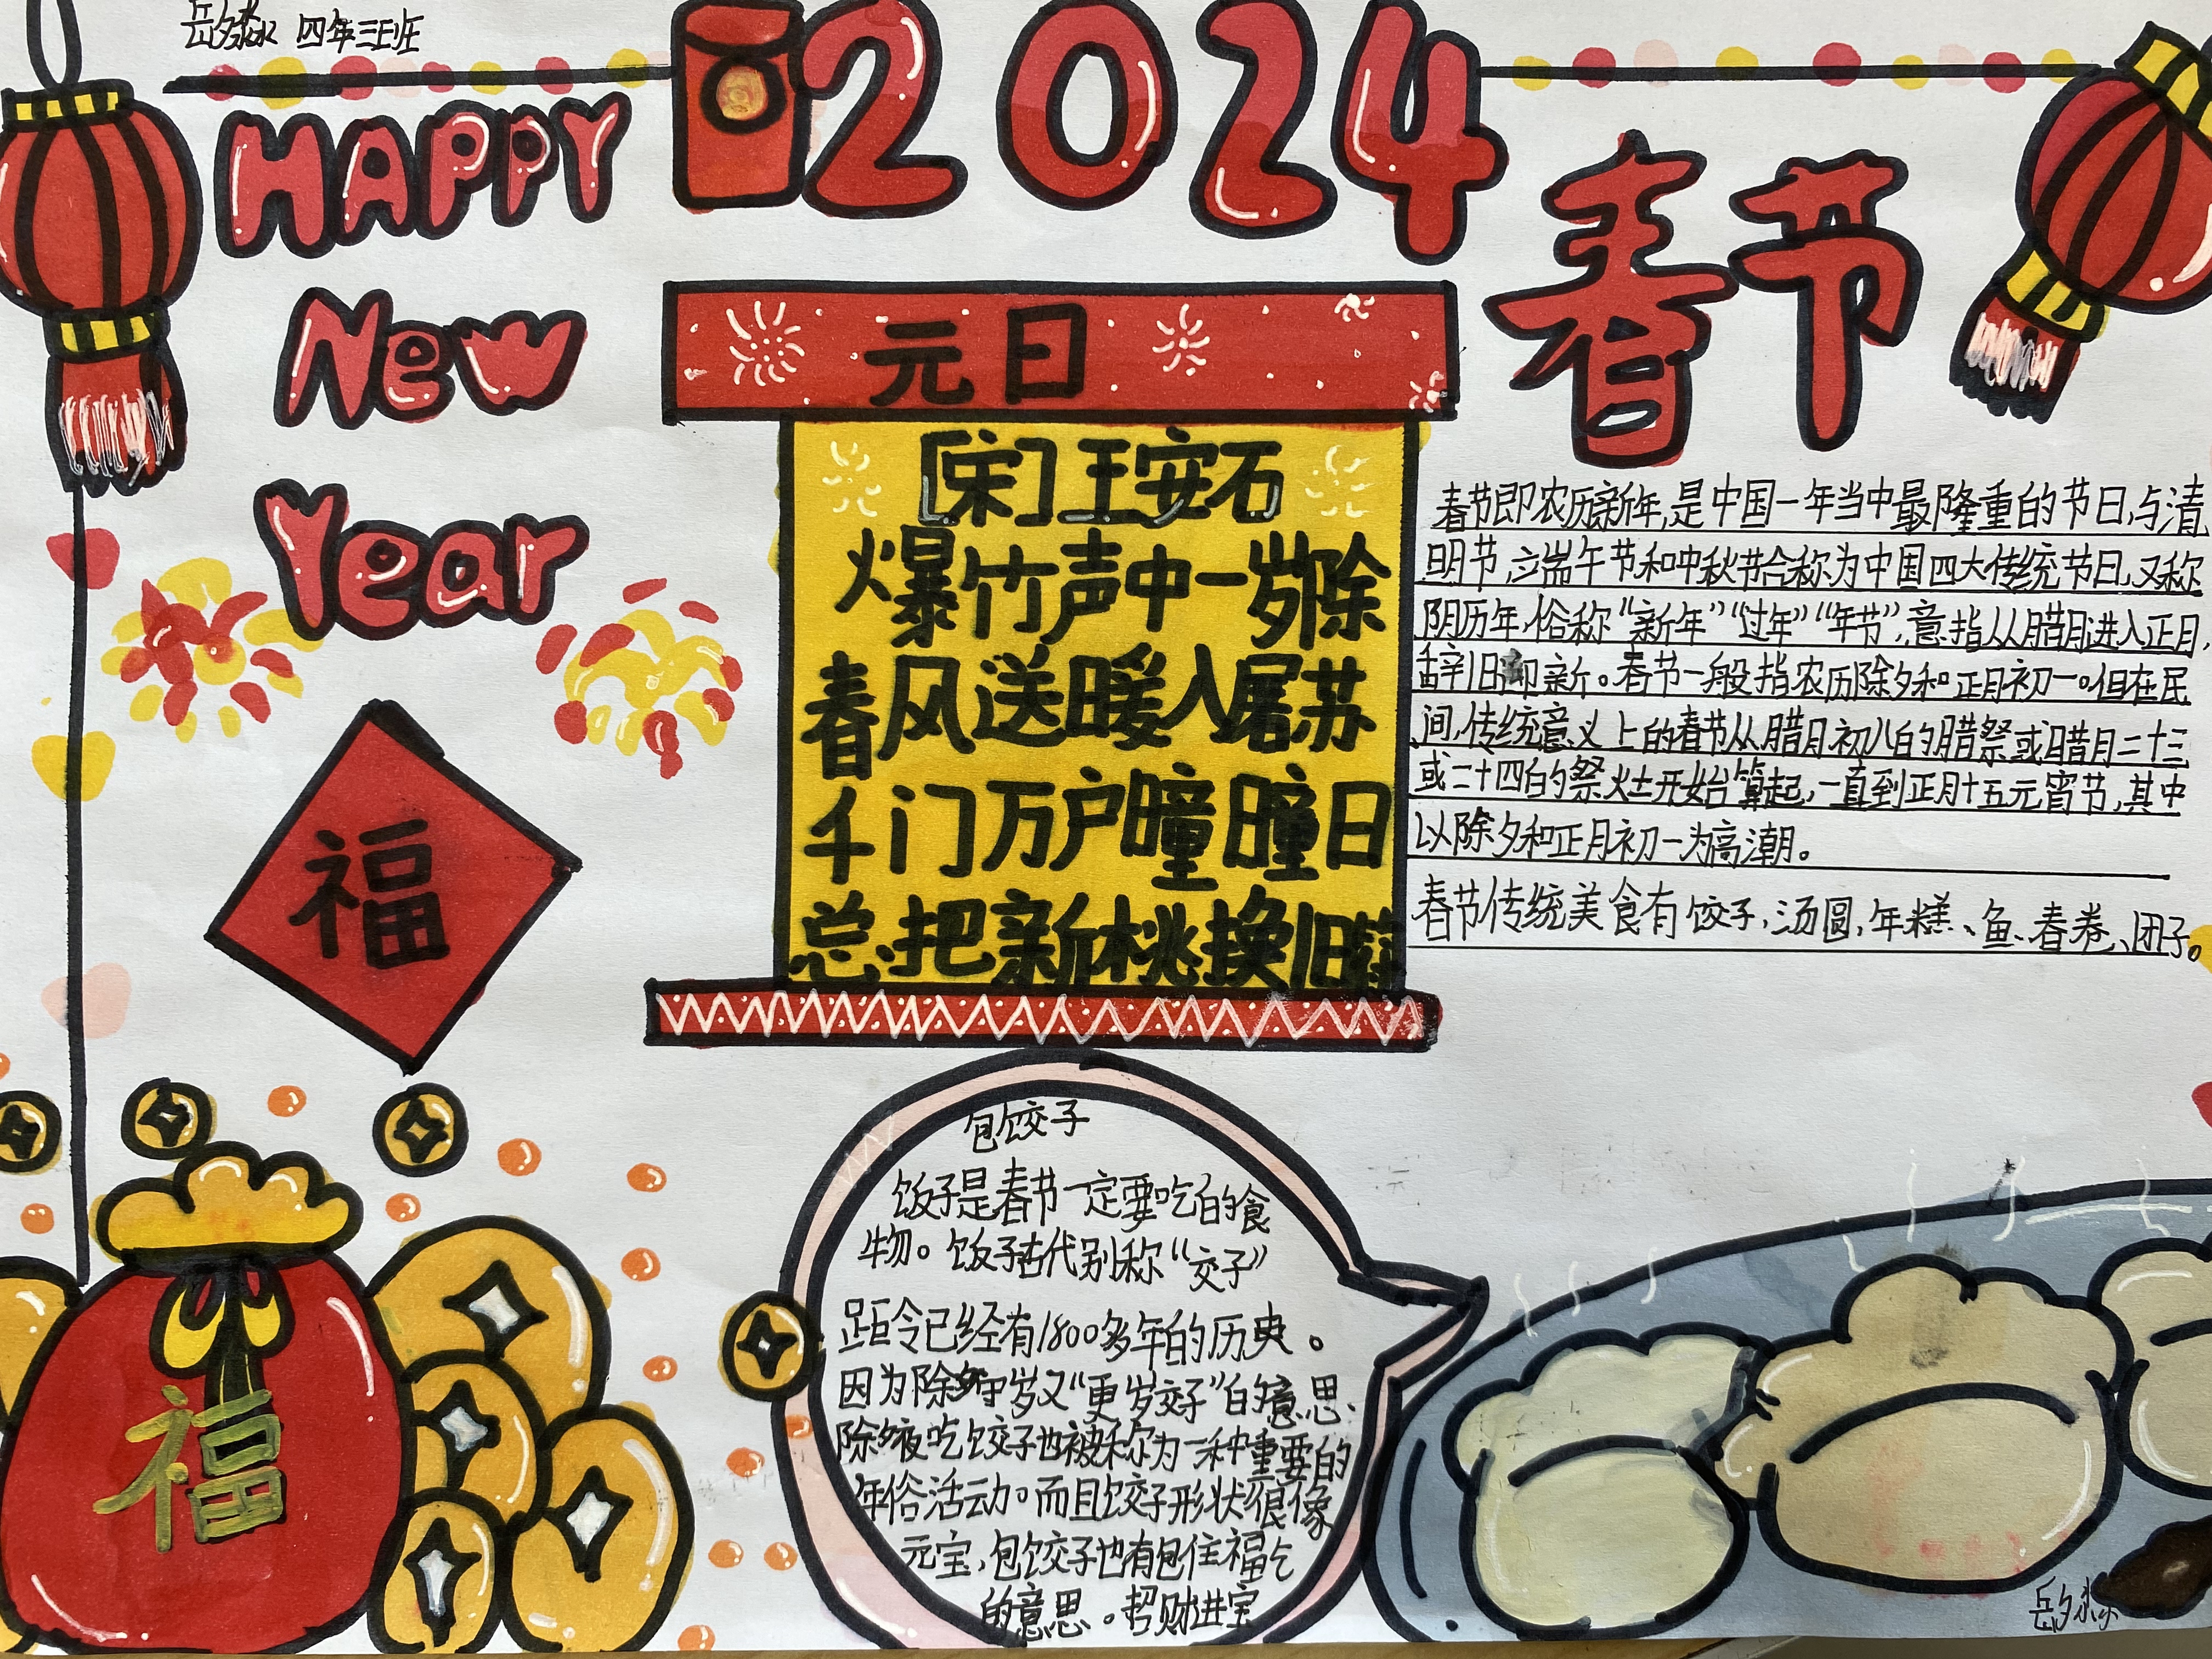 岳夕淼 四年三班
2024
HAPPY
New
Year
春节
元日
[宋]王安石
爆竹声中一岁除
春风送暖入屠苏
千门万户曈曈日
总把新桃换旧符
春节即农历新年,是中国一年当中最隆重的节日,与清
明节,端午节和中秋节合称为中国四大传统节日,又称
阴历年,俗称“新年”“过年”“年节”,意指从腊月进入正月,
辞旧迎新。春节一般指农历除夕和正月初一。但在民
间,传统意义上的春节从腊月初八的腊祭或腊月二十三
或二十四的祭灶开始算起,一直到正月十五元宵节,其中
以除夕和正月初一为高潮。
春节传统美食有饺子,汤圆,年糕、鱼、春卷、团子。
福
福
包饺子
饭子是春节一定要吃的食
物。饭子古代别称“交子”
距令已经有1800多年的历史。
因为除夕守岁又“更岁交子”的意思、
除夕夜吃饺子也被称为一种重要的
年俗活动。而且饺子形状很像
元宝,包饺子也有包住福气
的意思。招财进宝
岳夕淼